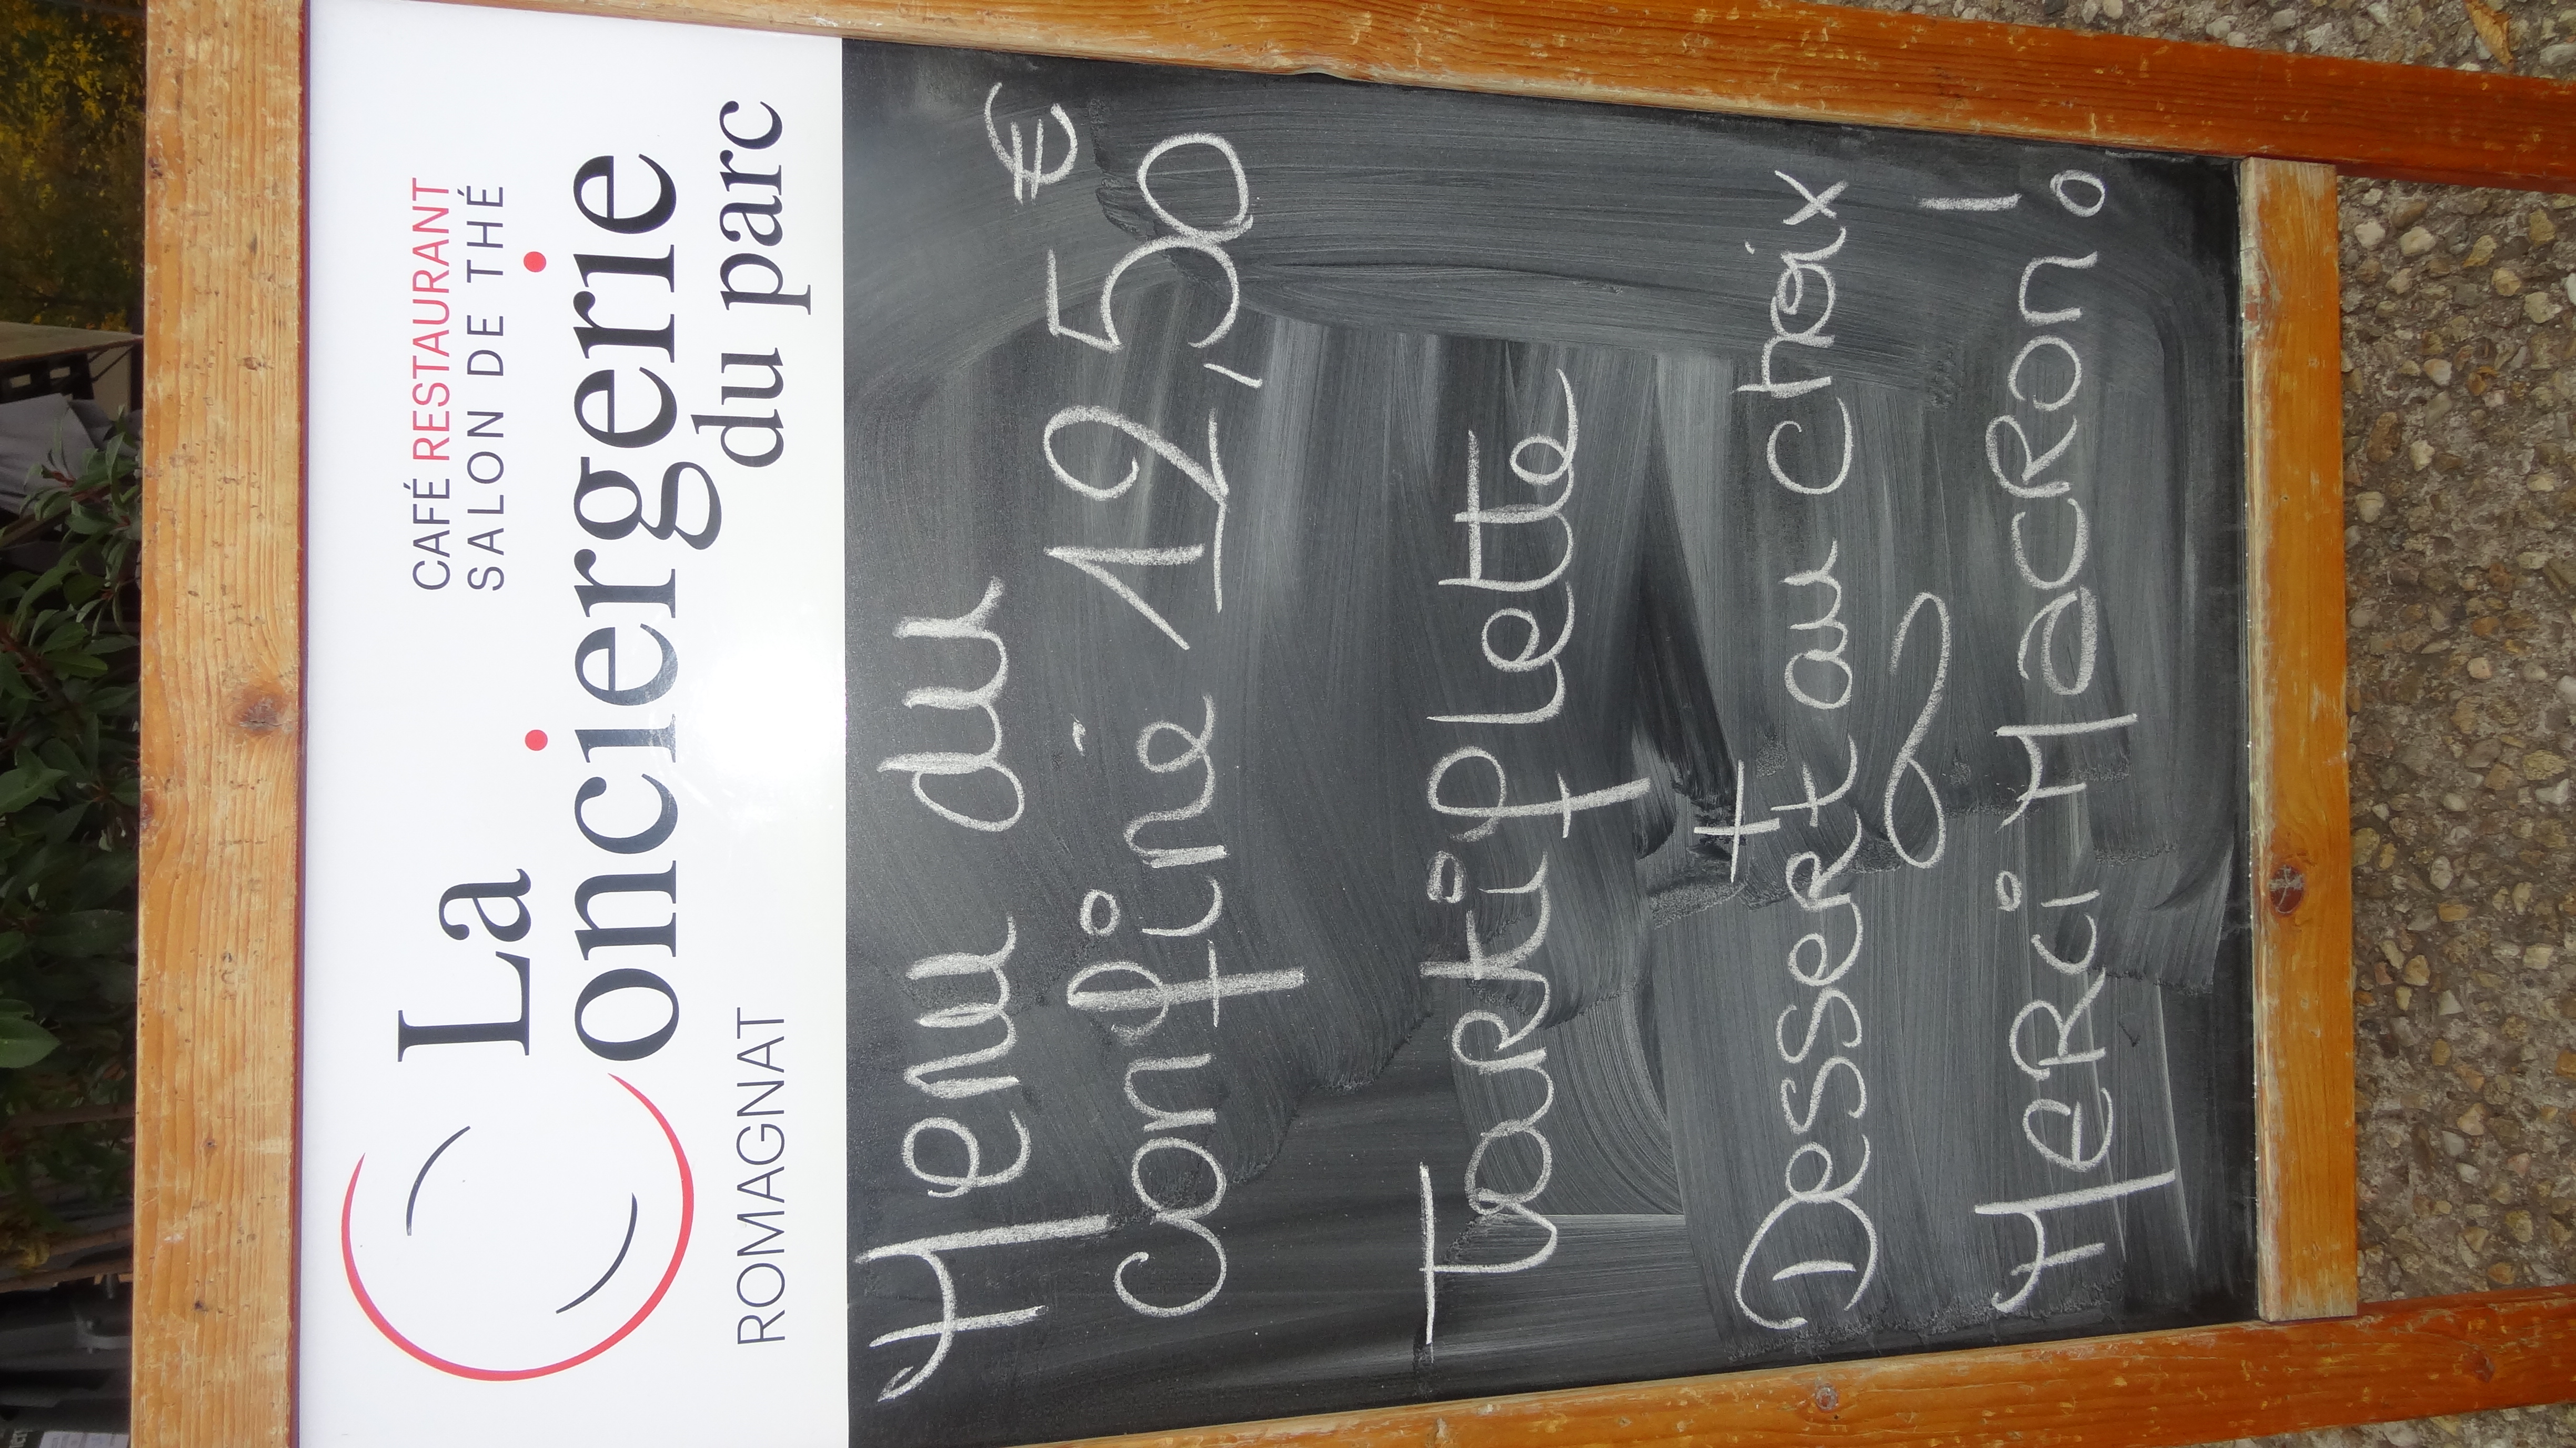 CAFÉ RESTAURANT
SALON DE THÉ
La
Conciergerie
du parc
ROMAGNAT
Menu du
confiné 12,50 €
Tartiplette
+
Dessert au choix
Merci Macron !